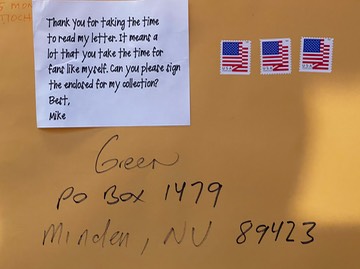 Thank you for taking the time
to read my letter. It means a
lot that you take the time for
fans like myself. Can you please sign
the enclosed for my collection?
Best,
Mike
Green
PO Box 1479
Minden, NV 89423